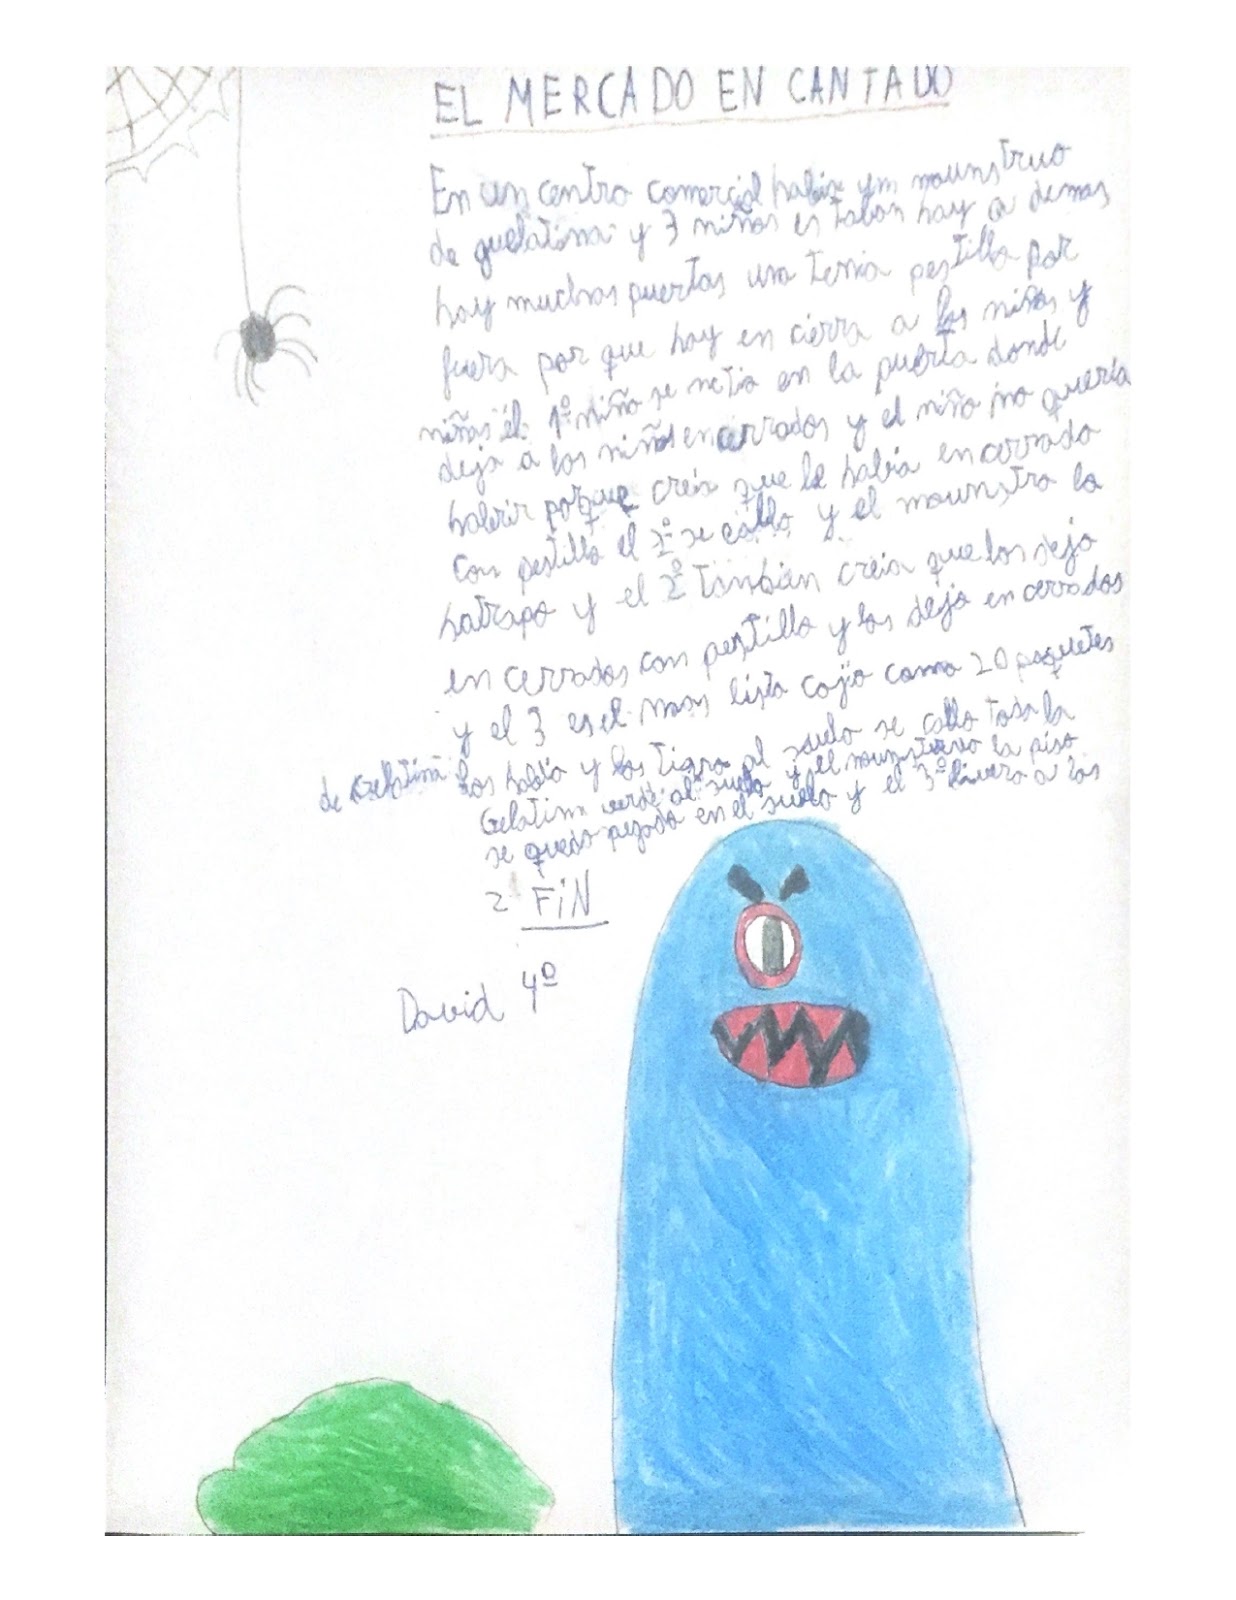 EL MERCADO EN CANTADO
En un centro comercial habia um mounstruo
de guelatina y 3 niños es taban hay a demas
hay muchas puertas una tenia pestillo por
fuera por que hay en cierra a los niños y
niñas el 1º niño se metio en la puerta donde
deja a los niños encerrados y el niño no queria
haberir porque creia que le habia en cerrado
con pestillo el 2º se callo y el mounstro lo
hatrapo y el 2º tambien creia que los deja
en cerrados con pestillo y los dejo en cerrados
y el 3 es el mas listo cojio como 20 paquetes
de Gelatina los habrio y los tiaro al suelo se callo toda la
Gelatina verde al suelo y el mounstruo la piso
se quedo pegado en el suelo y el 3º livero a los
2 FIN
David 4º